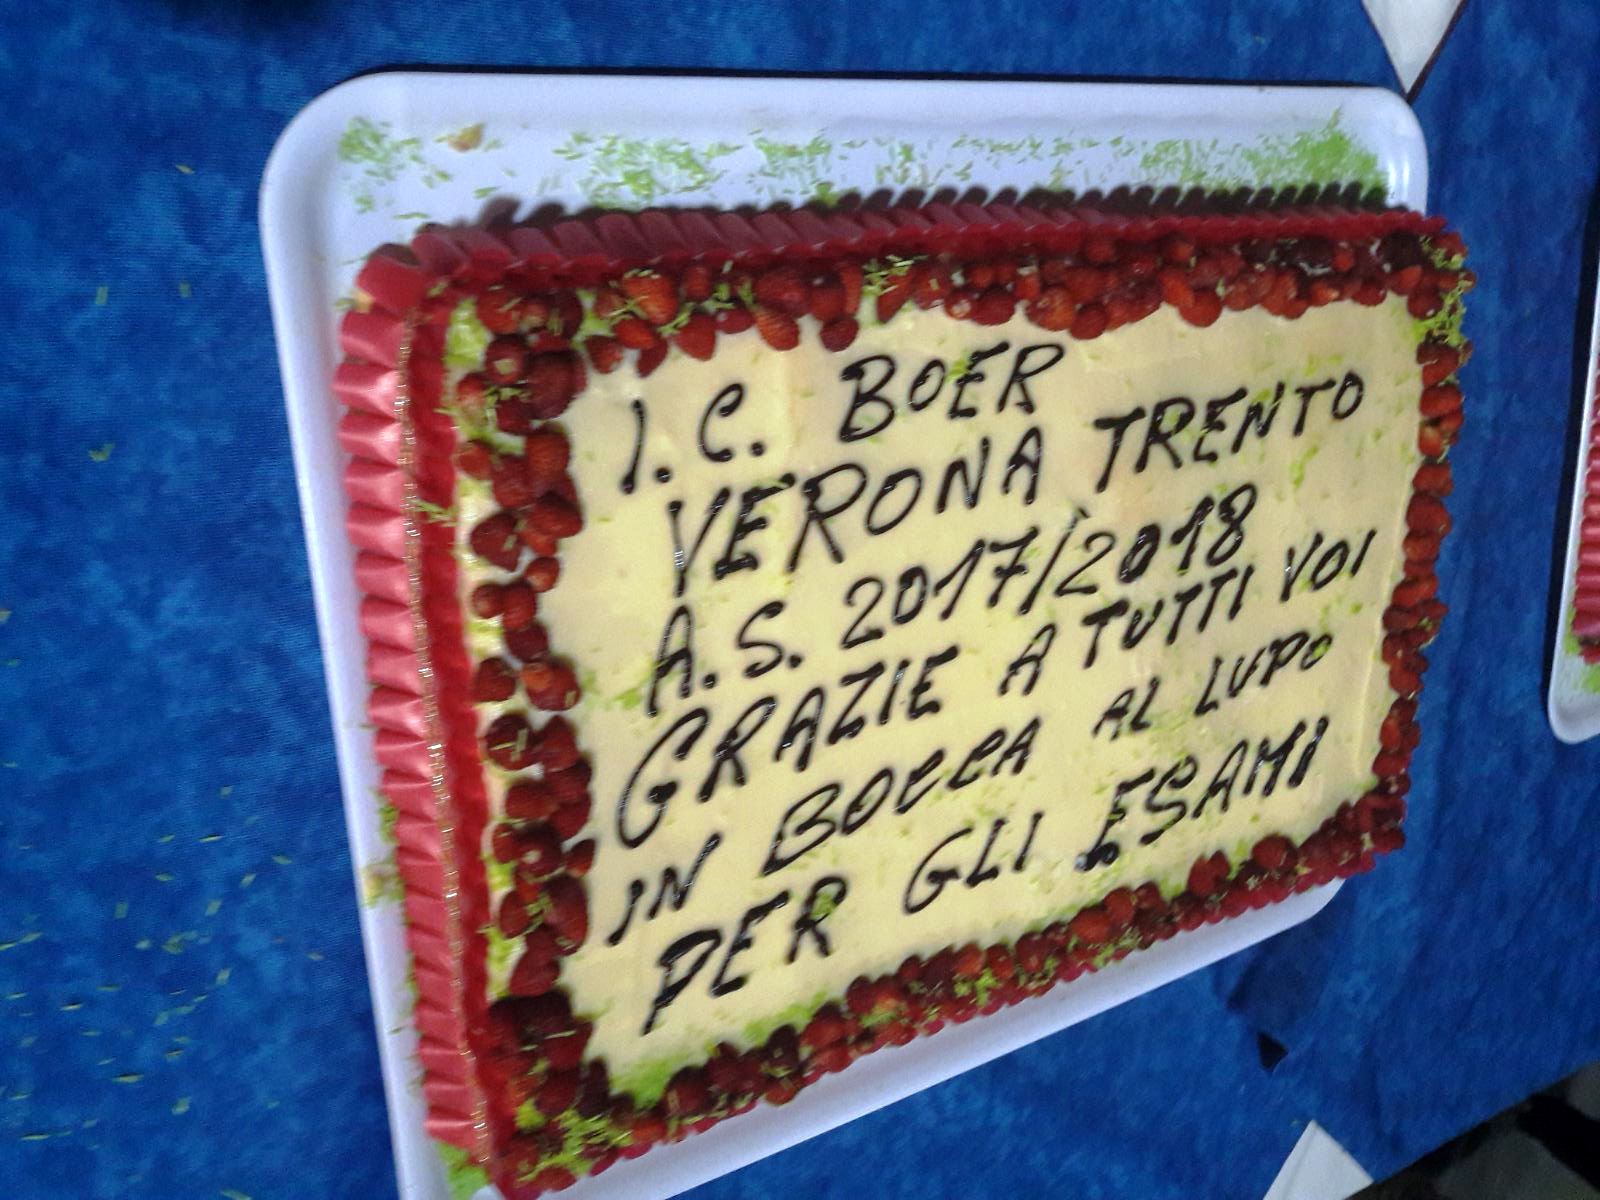 I.C. BOER
VERONA TRENTO
A.S. 2017/2018
GRAZIE A TUTTI VOI
IN BOCCA AL LUPO
PER GLI ESAMI